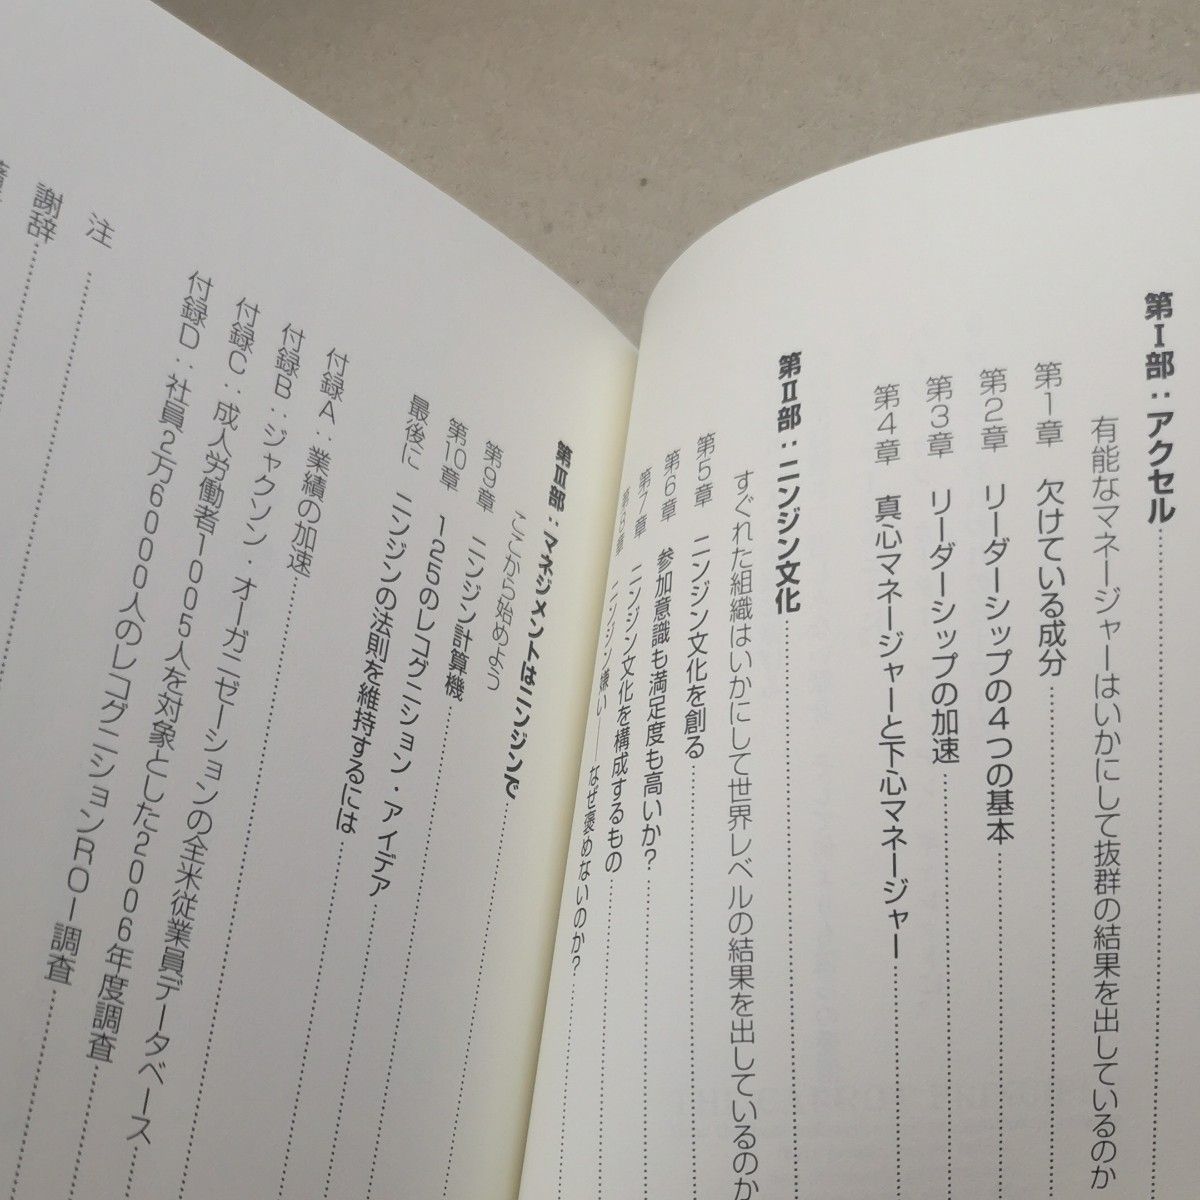 第Ⅰ部:アクセル
有能なマネージャーはいかにして抜群の結果を出しているのか
第1章 欠けている成分
第2章 リーダーシップの4つの基本
第3章 リーダーシップの加速
第4章 真心マネージャーと下心マネージャー
第Ⅱ部:ニンジン文化
すぐれた組織はいかにして世界レベルの結果を出しているのか
第5章 ニンジン文化を創る
第6章 参加意識も満足度も高いか?
第7章 ニンジン文化を構成するもの
第8章 ニンジン嫌い――なぜ褒めないのか?
第Ⅲ部:マネジメントはニンジンで
ここから始めよう
第9章 ニンジン計算機
第10章 125のレコグニション・アイデア
最後に ニンジンの法則を維持するには
付録A:業績の加速
付録B:ジャクソン・オーガニゼーションの全米従業員データベース
付録C:成人労働者1005人を対象とした2006年度調査
付録D:社員2万6000人のレコグニションROI調査
注
謝辞